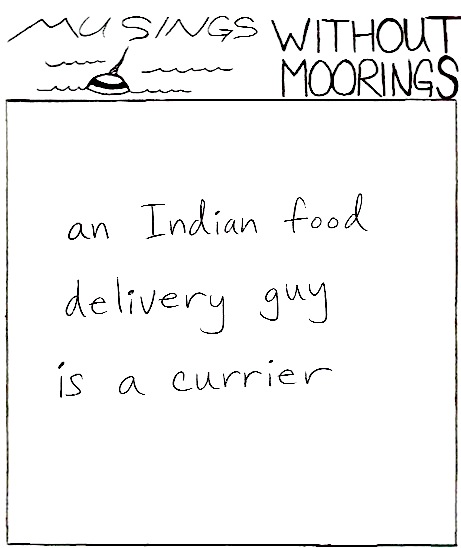 MUSINGS WITHOUT
MOORINGS
an Indian food
delivery guy
is a currier